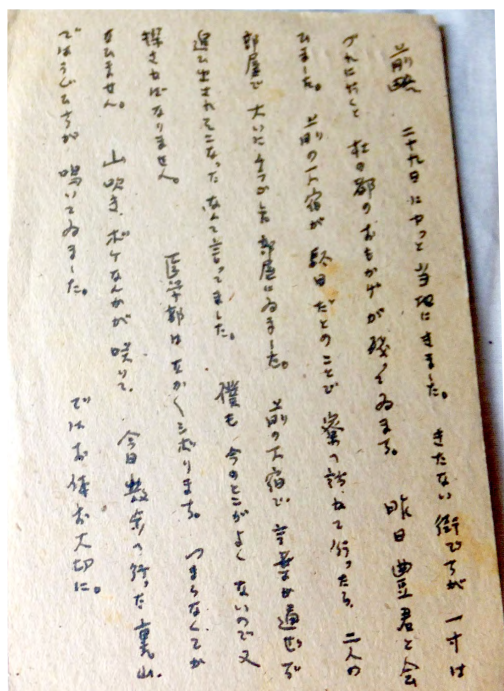 前略 二十九日にヤっと当地にきました。 きたない街ですが 一寸は
づれにだと 杜の都のおもかげが残ってゐます。 昨日 豊君と会
ひました。 前の下宿が 駄目だとのことで 寮へ訪ねて行ったら、二人の
部屋で 大いに 部屋にゐました。 前の下宿で、言葉が通ぜず
追ひ出されそこなったなんて言ってました。 僕も 今のとこがよくないので又
探さねばなりません。 医学部はなかなかしぼります。 つまらなくてか
なひません。 山吹き、ボケなんかが咲いて、 今日 散策へ行った裏山、
ではうぐひすが 鳴いてゐました。 ではお体お大切に。